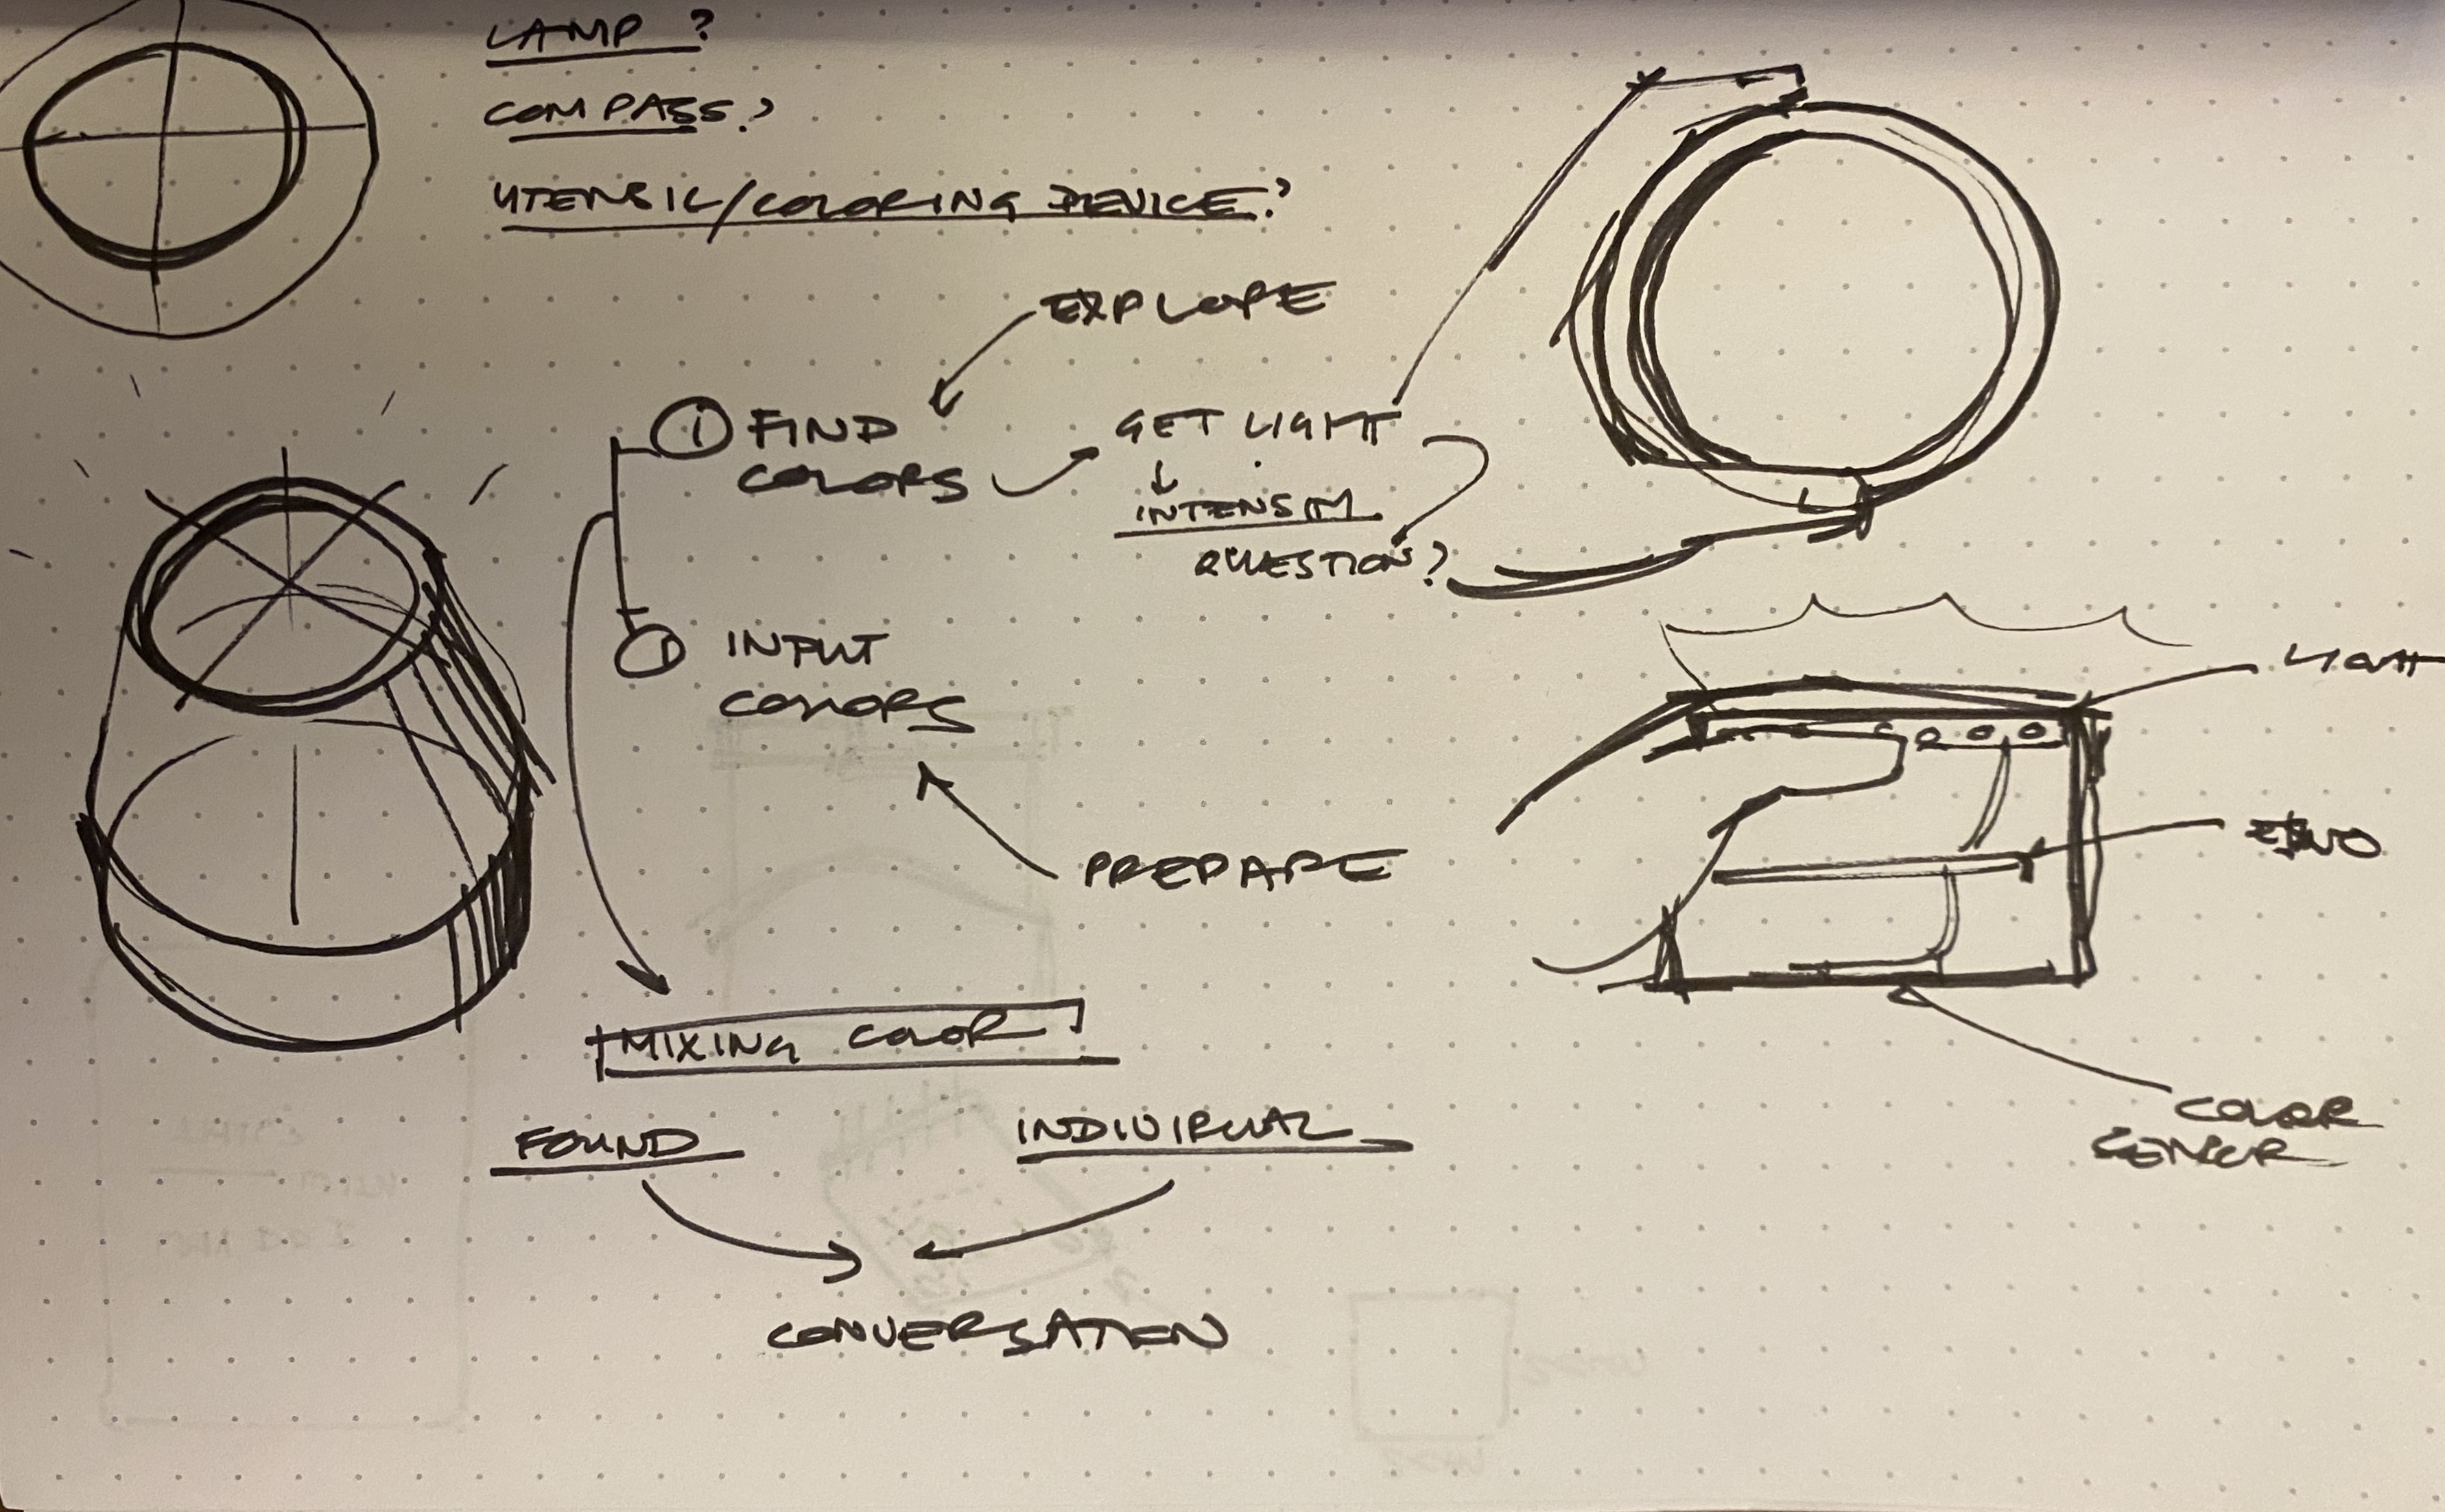 LAMP?
COMPASS?
UTENSIL/COLORING DEVICE?
EXPLORE
① FIND
COLORS
GET LIGHT
INTENSITY
QUESTION?
① INPUT
COLORS
PREPARE
LIGHT
COLOR
SENSOR
MIXING COLOR
FOUND
INDIVIDUAL
CONVERSATION